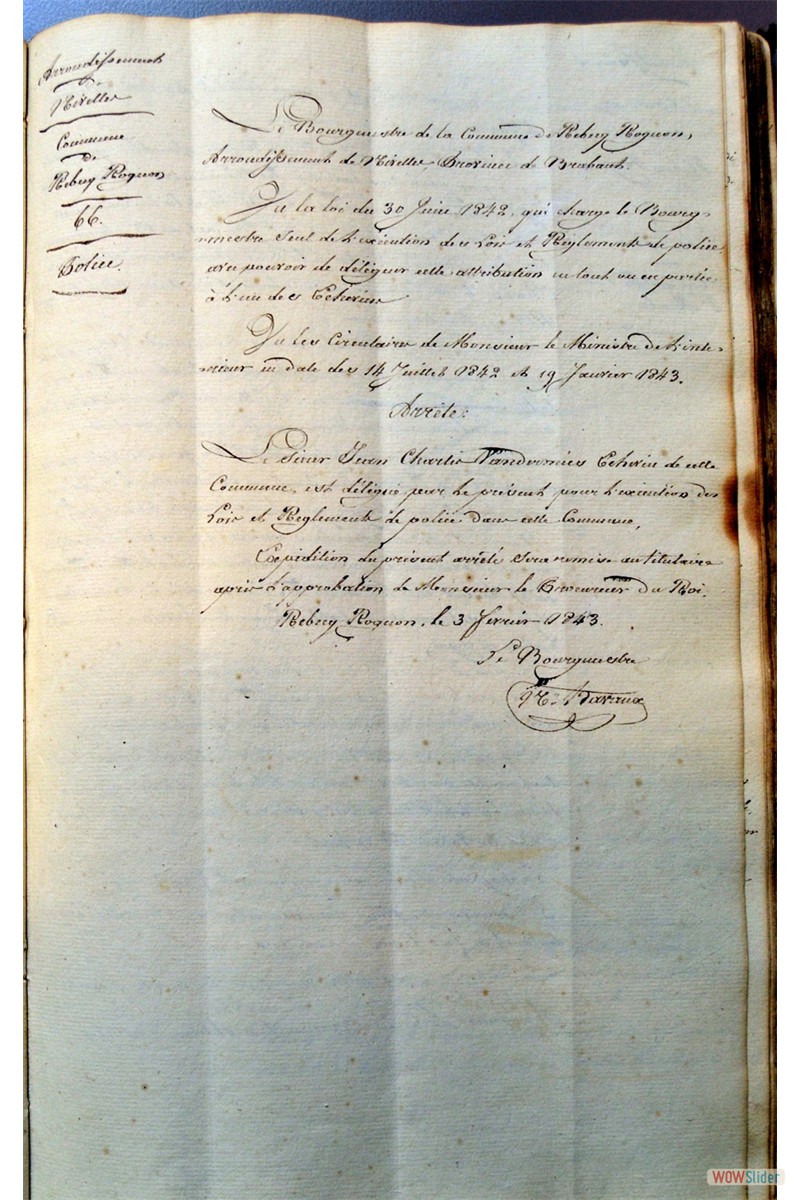 Arrondissement
de
Nivelles
Commune
de
Rebecq Rognon
66.
Police.
Le Bourgmestre de la Commune de Rebecq Rognon,
Arrondissement de Nivelles, Province de Brabant.
Vu la loi du 30 Juin 1842, qui charge le Bourg-
mestre seul de l'exécution des Lois et Règlements de police
avec pouvoir de déléguer cette attribution en tout ou en partie
à l'un des Echevins
Vu les Circulaires de Monsieur le Ministre de l'inte-
rieur en date des 14 Juillet 1842 et 19 Janvier 1843.
Arrête:
Le Sieur Jean Charles Echevin de cette
Commune, est délégué par le présent pour l'exécution des
Lois et Reglements de police dans cette Commune,
Expédition du présent arrêté sera remise au titulaire
après l'approbation de Monsieur le Procureur du Roi.
Rebecq Rognon, le 3 fevrier 1843.
Le Bourgmestre
WOWSlider